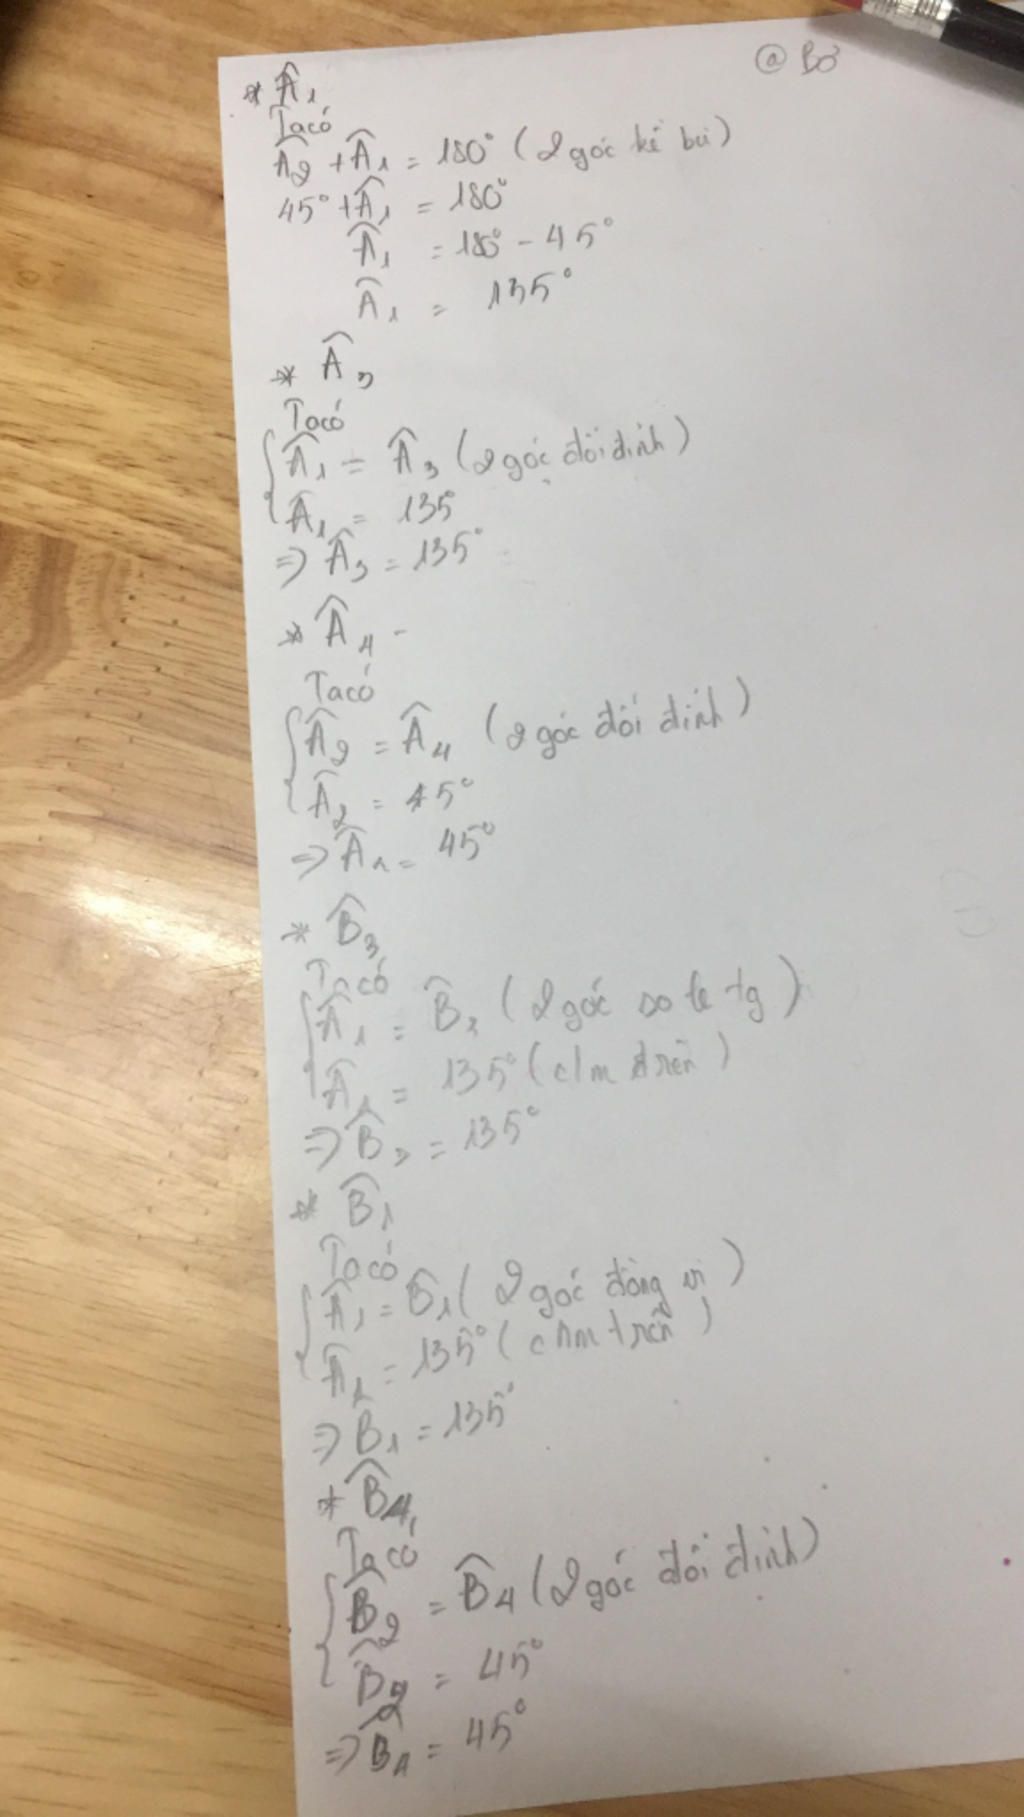 @ Bơ
* Â₁
Ta có
Â₂ + Â₁ = 180° (2 góc kề bù)
45° + Â₁ = 180°
Â₁ = 180° - 45°
Â₁ = 135°
* Â₃
Ta có
{ Â₁ = Â₃ (2 góc đối đỉnh)
Â₁ = 135°
=> Â₃ = 135°
* Â₄ -
Ta có
{ Â₂ = Â₄ (2 góc đối đỉnh)
Â₂ = 45°
=> Â₄ = 45°
* B̂₃
Ta có
{ Â₁ = B̂₃ (2 góc so le tg)
Â₁ = 135° (c/m trên)
=> B̂₃ = 135°
* B̂₁
Ta có
{ Â₁ = B̂₁ (2 góc đồng vị)
Â₁ = 135° (c/m trên)
=> B̂₁ = 135°
* B̂₄
Ta có
{ B̂₂ = B̂₄ (2 góc đối đỉnh)
B̂₂ = 45°
=> B̂₄ = 45°